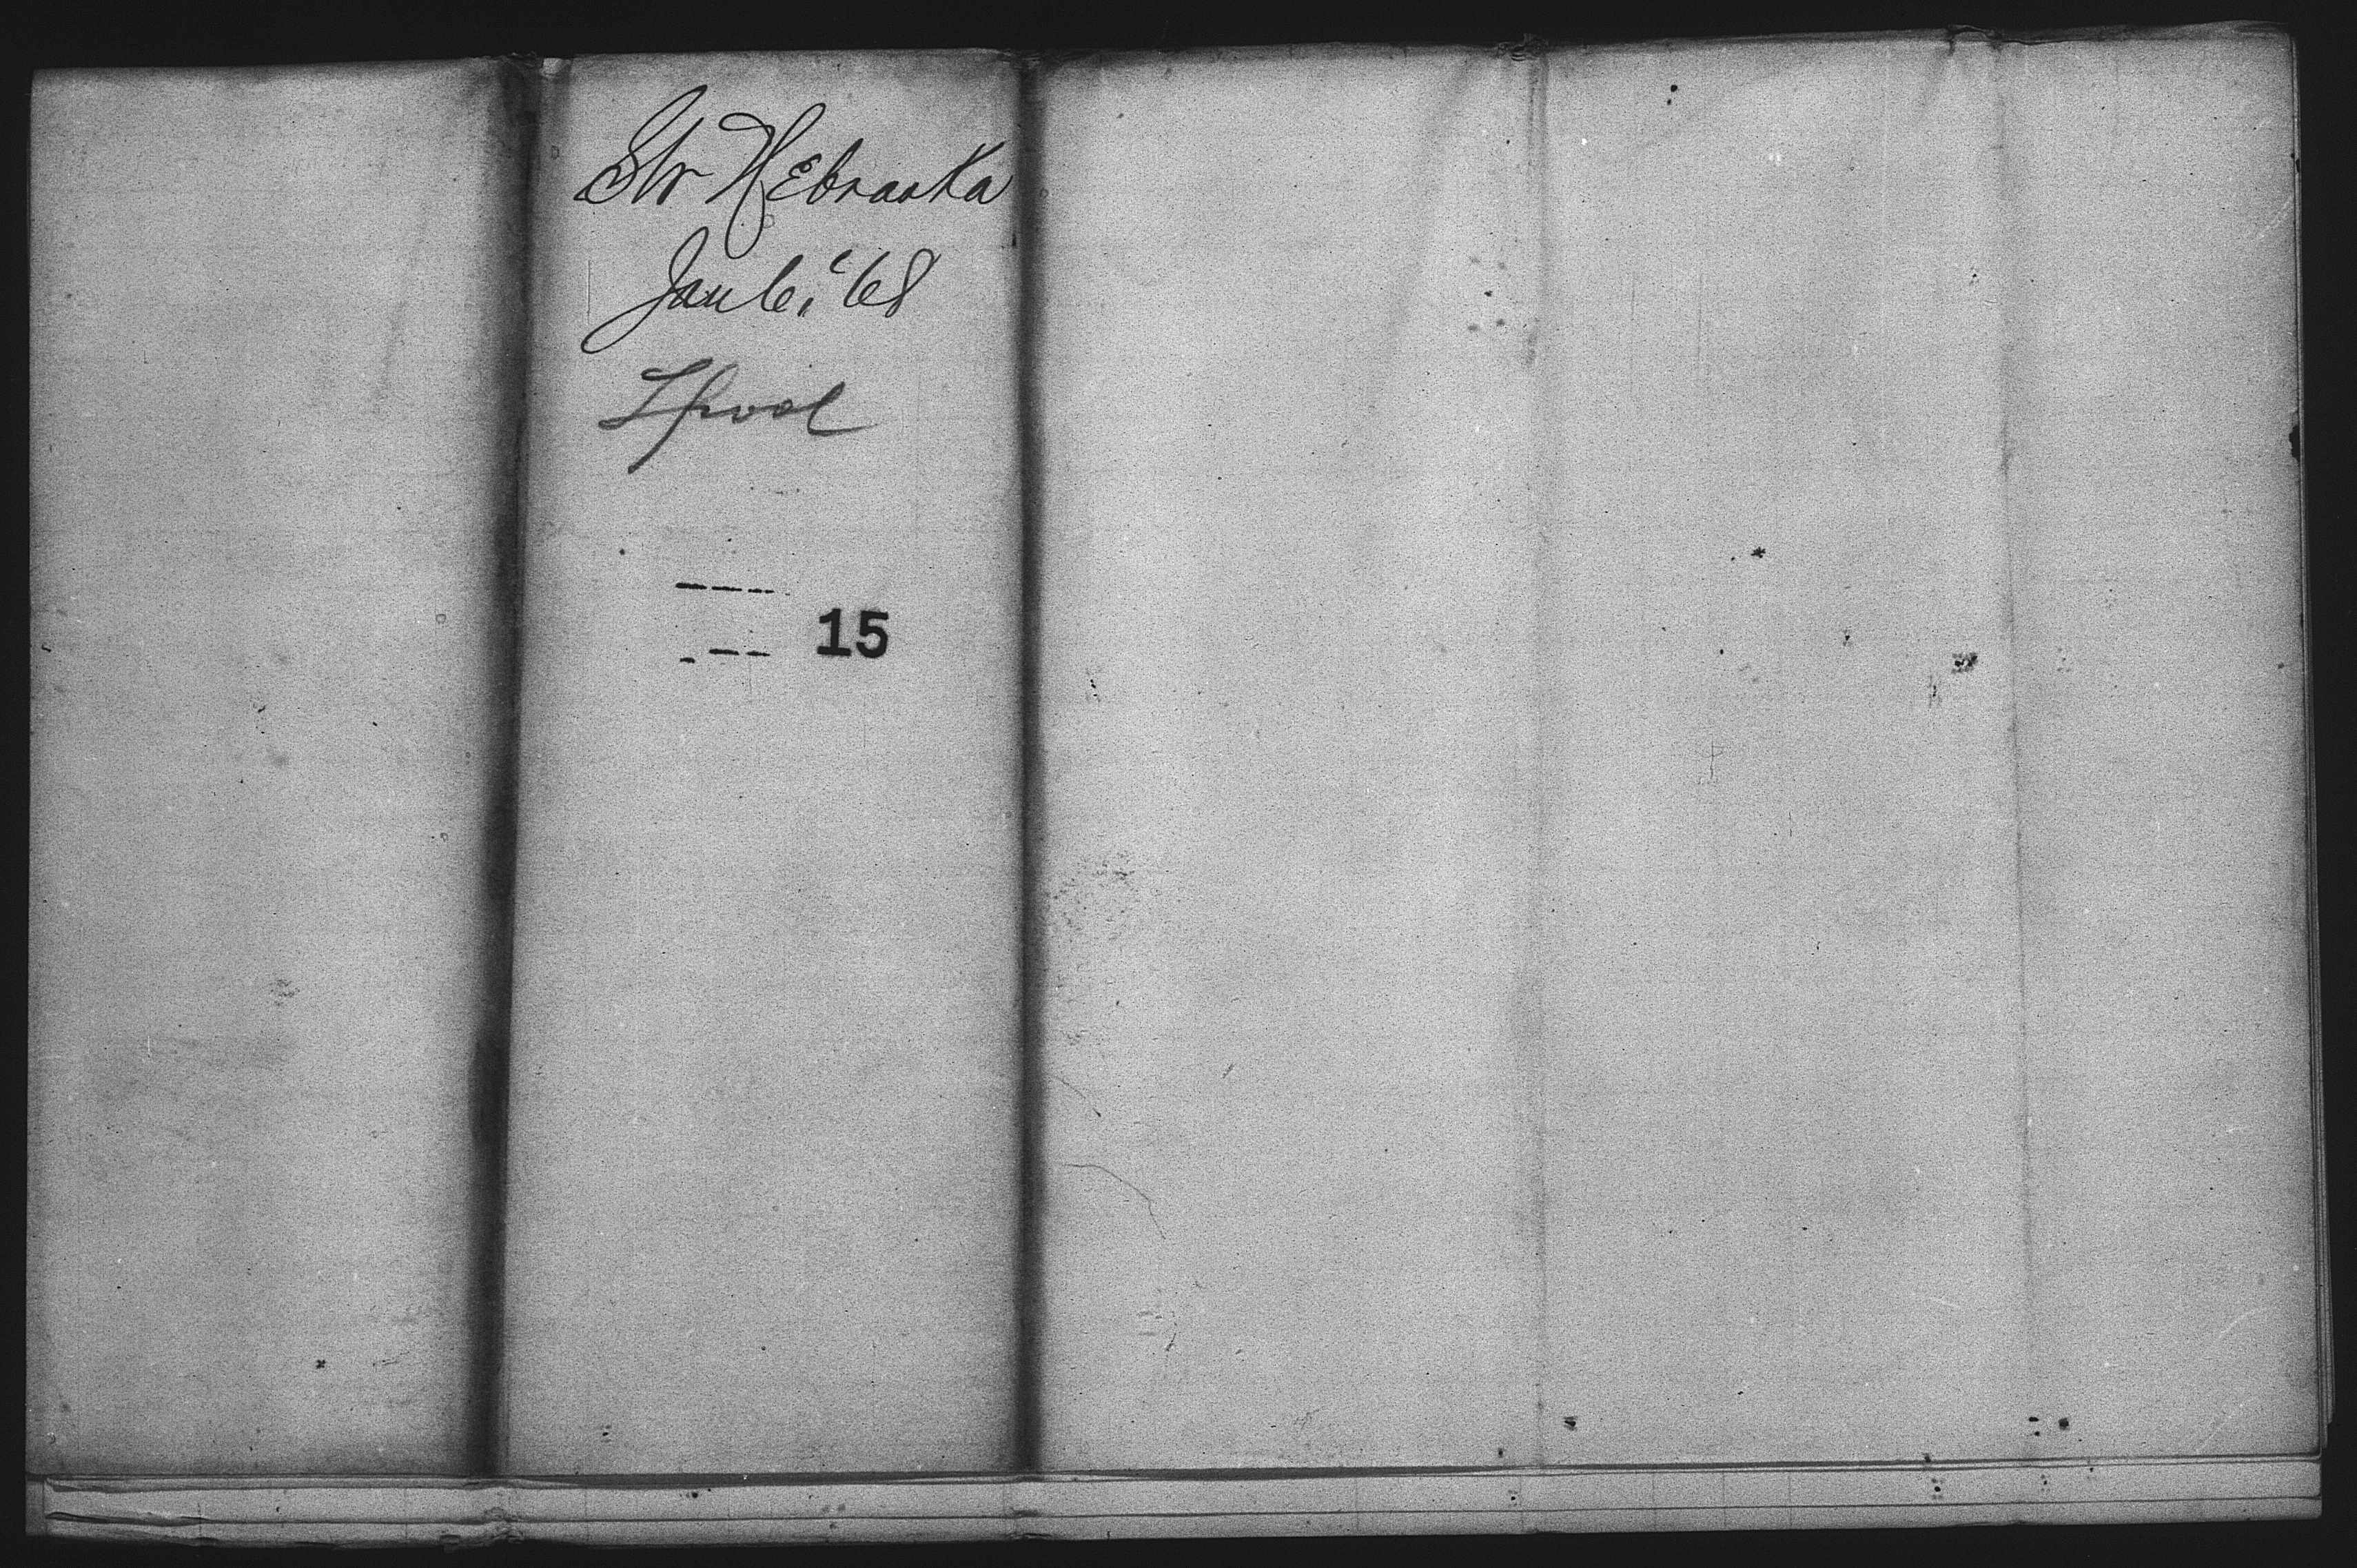 Str Nebraska
Jan 6, '68
Lpool
15